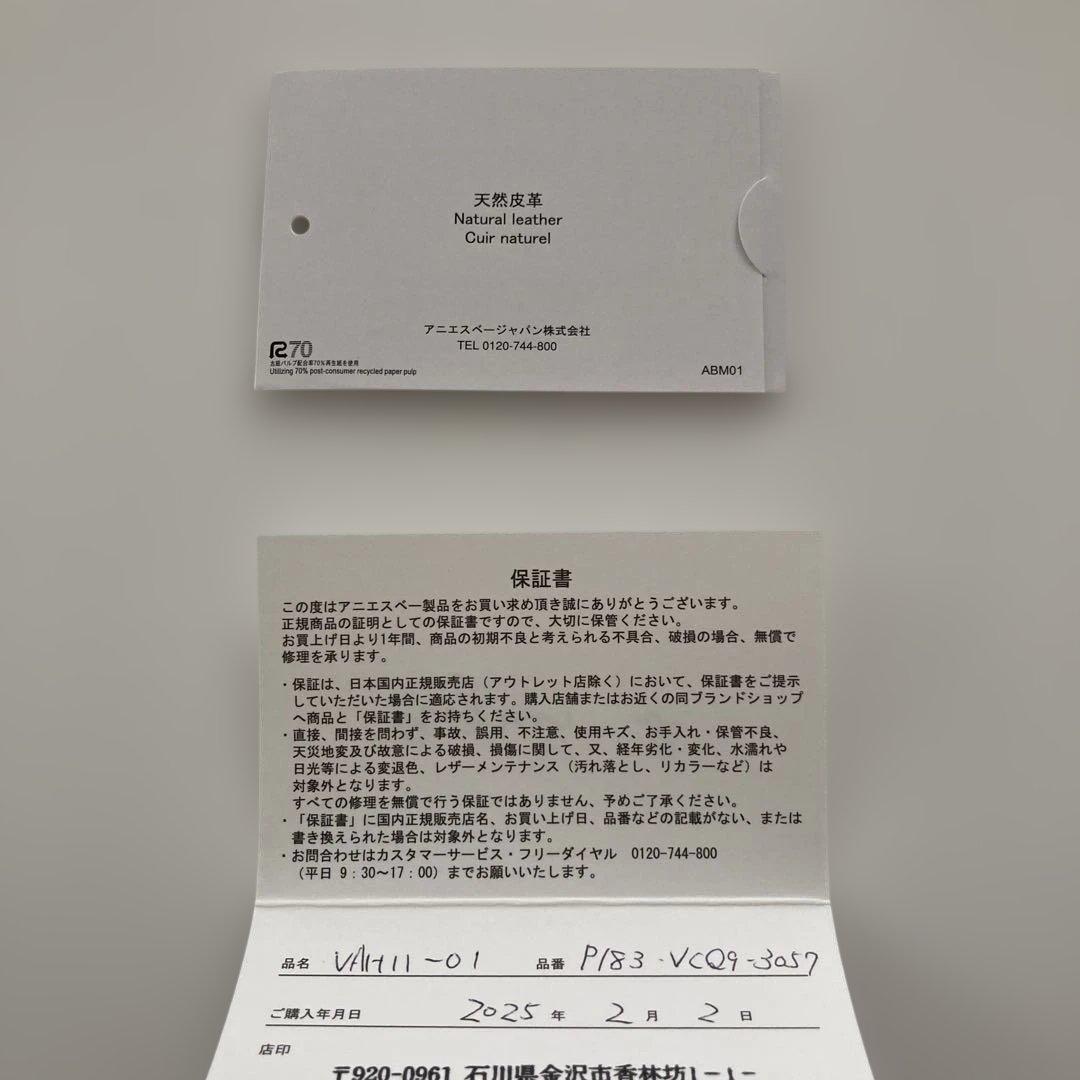 天然皮革
Natural leather
Cuir naturel
アニエスベージャパン株式会社
TEL 0120-744-800
R70
古紙パルプ配合率70%再生紙を使用
Utilizing 70% post-consumer recycled paper pulp
ABM01
保証書
この度はアニエスベー製品をお買い求め頂き誠にありがとうございます。
正規商品の証明としての保証書ですので、大切に保管ください。
お買上げ日より1年間、商品の初期不良と考えられる不具合、破損の場合、無償で
修理を承ります。
・保証は、日本国内正規販売店（アウトレット店除く）において、保証書をご提示
していただいた場合に適応されます。購入店舗またはお近くの同ブランドショップ
へ商品と「保証書」をお持ちください。
・直接、間接を問わず、事故、誤用、不注意、使用キズ、お手入れ・保管不良、
天災地変及び故意による破損、損傷に関して、又、経年劣化・変化、水濡れや
日光等による変退色、レザーメンテナンス（汚れ落とし、リカラーなど）は
対象外となります。
すべての修理を無償で行う保証ではありません、予めご了承ください。
・「保証書」に国内正規販売店名、お買い上げ日、品番などの記載がない、または
書き換えられた場合は対象外となります。
・お問合わせはカスタマーサービス・フリーダイヤル 0120-744-800
（平日 9：30～17：00）までお願いいたします。
品名 VAH11-01 品番 P183-VCQ9-3057
ご購入年月日 2025 年 2 月 2 日
店印
〒920-0961 石川県金沢市香林坊1-1-